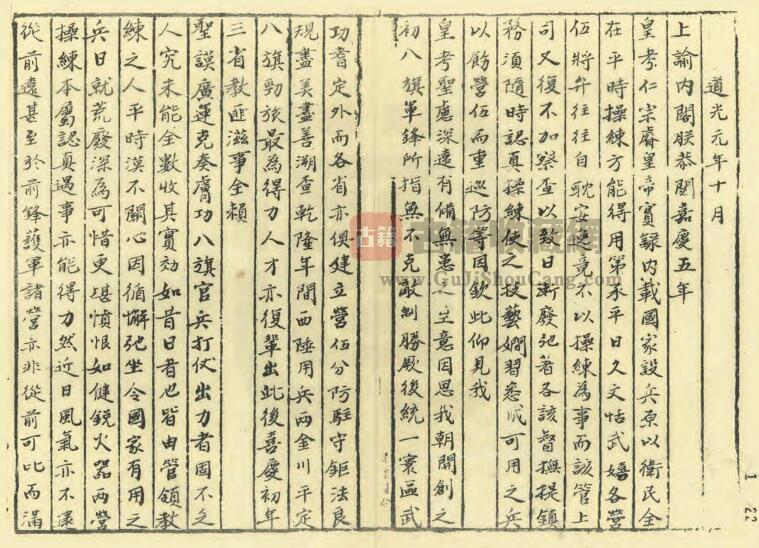 道光元年十月
上諭内閣朕恭閱嘉慶五年
皇考仁宗睿皇帝實錄内載國家設兵原以衛民全
在平時操練方能得用第承平日久文恬武嬉各營
伍將弁往往自耽安逸竟不以操練為事而該管上
司又復不加察查以致日漸廢弛著各該督撫提鎮
務須隨時認真操練使之技藝嫺習悉成可用之兵
以飭營伍而重巡防等因欽此仰見我
皇考聖慮深遠有備無患之至意因思我朝開創之
初八旗軍鋒所指無不克敵制勝厥後統一寰區武
功耆定外而各省亦俱建立營伍分防駐守鉅法良
規盡美盡善溯查乾隆年間西陲用兵兩金川平定
八旗勁旅最為得力人才亦復輩出此後嘉慶初年
三省教匪滋事全賴
聖謨廣運克奏膚功八旗官兵打仗出力者固不乏
人究未能全數收其實効如昔日者也皆由管領教
練之人平時漠不關心因循懈弛坐令國家有用之
兵日就荒廢深為可惜更堪憤恨如健銳火器兩營
操練本屬認真遇事亦能得力然近日風氣亦不逮
從前遠甚至於前鋒護軍諸營亦非從前可比而滿
古籍
www.GuJiShouCang.com
1
22